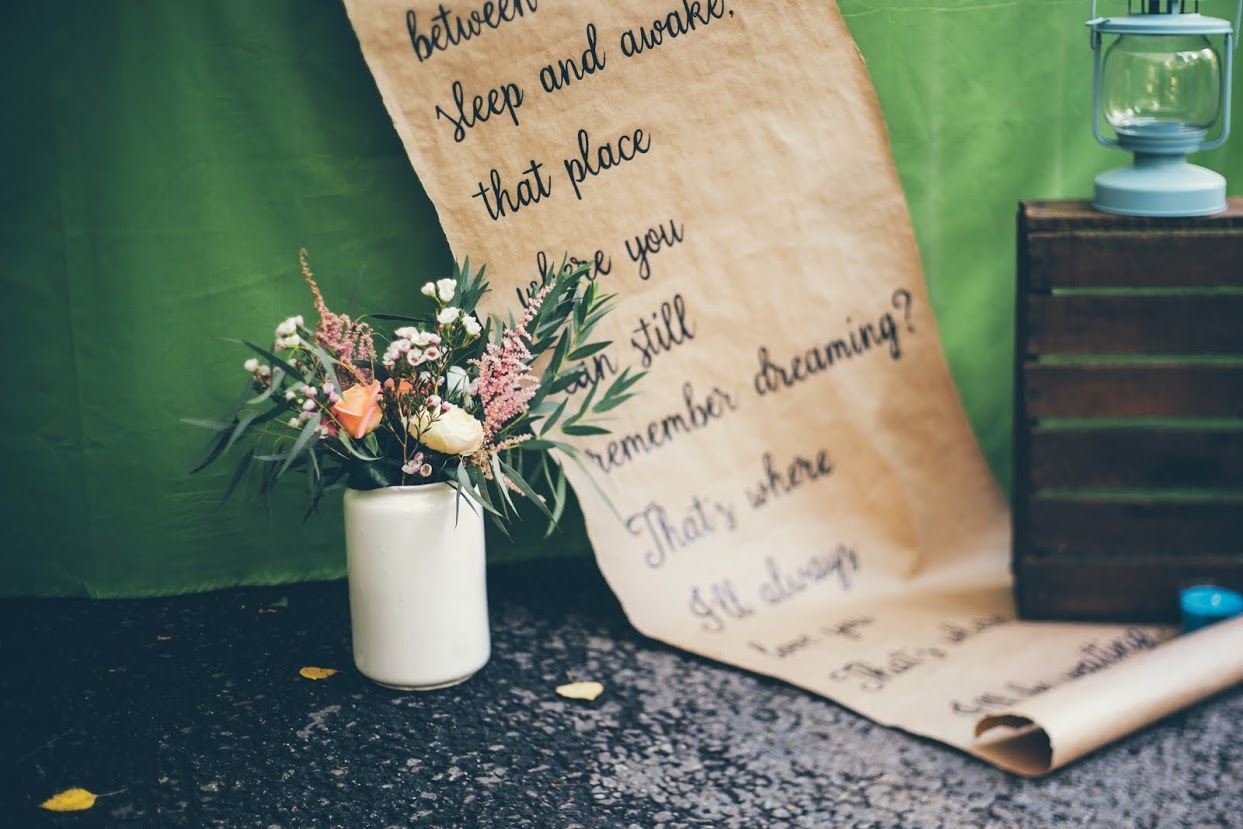 between
sleep and awake,
that place
where you
can still
remember dreaming?
That's where
I'll always
love you
That's where
I'll be waiting